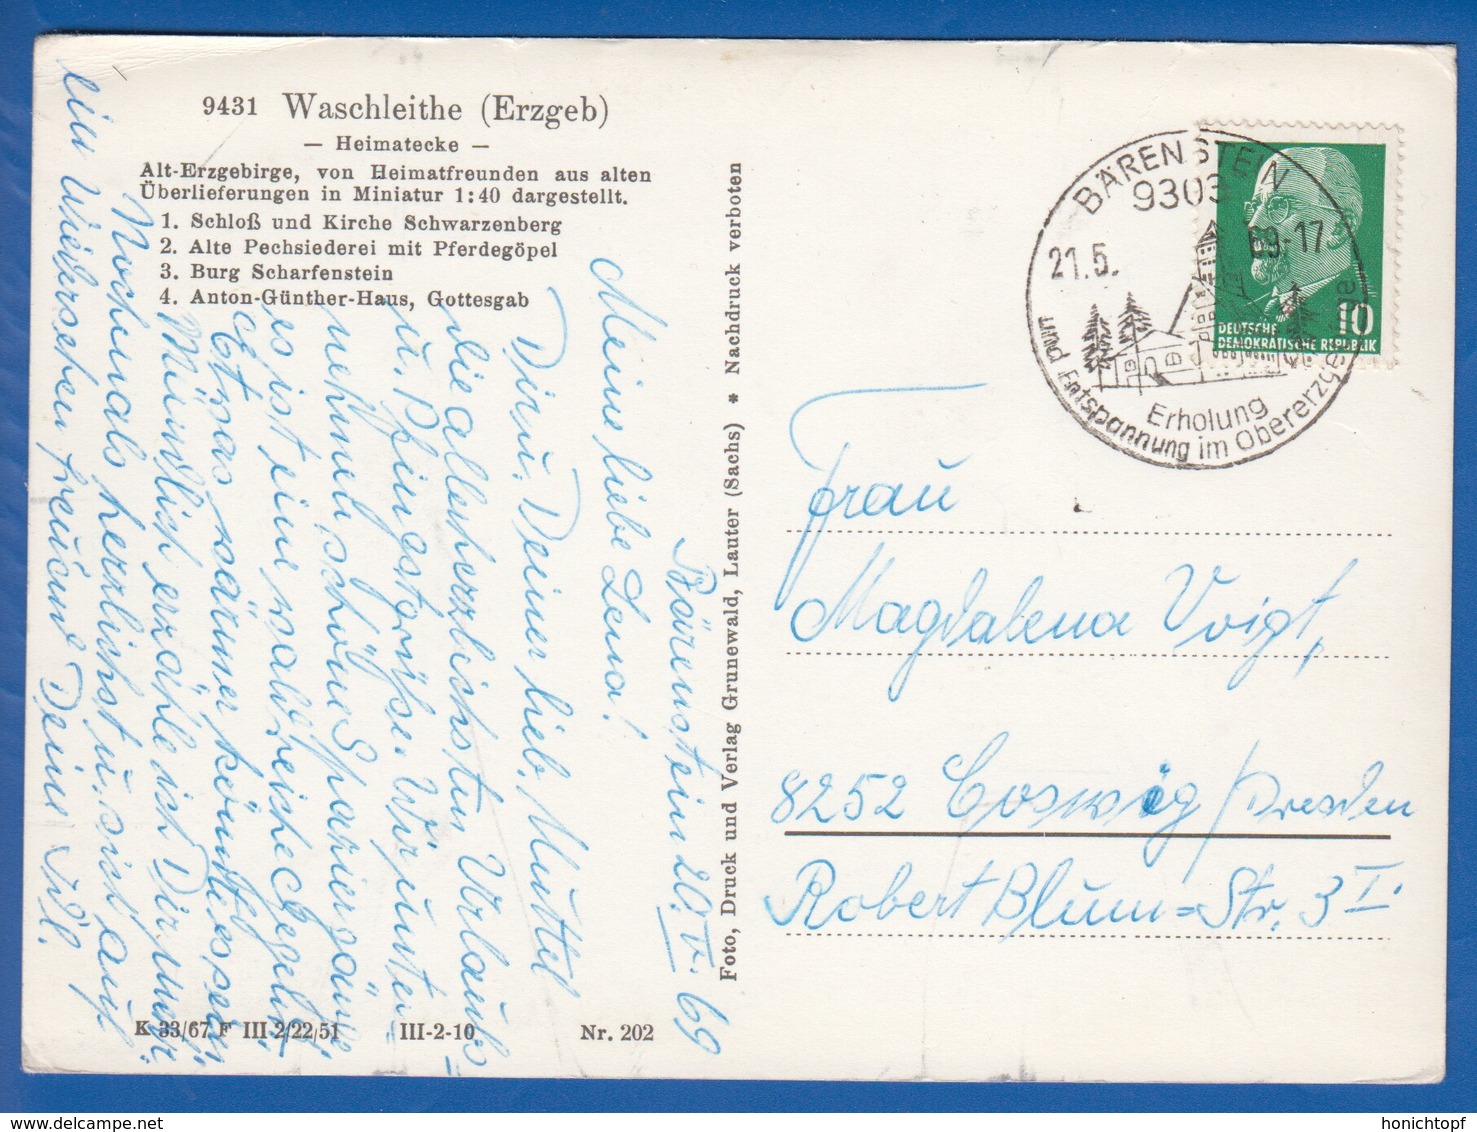 9431 Waschleithe (Erzgeb)
— Heimatecke —
Alt-Erzgebirge, von Heimatfreunden aus alten
Überlieferungen in Miniatur 1:40 dargestellt.
1. Schloß und Kirche Schwarzenberg
2. Alte Pechsiederei mit Pferdegöpel
3. Burg Scharfenstein
4. Anton-Günther-Haus, Gottesgab
Bärenstein 20.V.69
Meine liebe Lena!
Dir u. Deiner lieb. Muttel
die allerherzlichsten Urlaubs-
u. Pfingstgrüße. Wir unter-
nehmen schöne Spaziergänge
es ist eine waldreiche Gegend.
Etwas wärmer könnte es sein
Mündlich erzähle ich Dir mehr.
Nochmals herzlichst u. sich auf
ein Wiedersehen freuend Deine
K 33/67 F III 2/22/51
III-2-10
Nr. 202
Foto, Druck und Verlag Grunewald, Lauter (Sachs) * Nachdruck verboten
BÄRENSTEIN
9303
21.5.69-17
Erholung
und Entspannung im Obererzgebirge
DEUTSCHE
DEMOKRATISCHE REPUBLIK
10
Frau
Magdalena Voigt,
8252 Coswig/Dresden
Robert Blum=Str. 3 I.
honichtopf